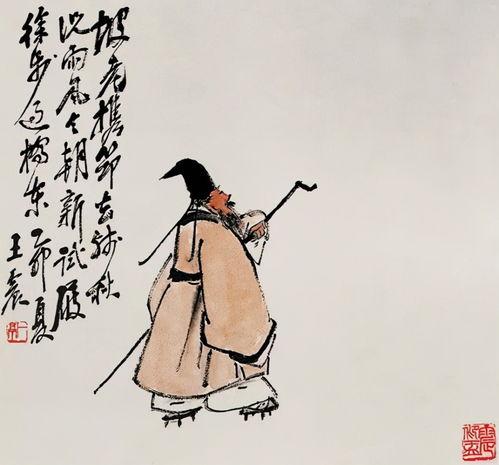 坡老携筇去殘秋
況雨風今朝新試屐
徐步過橋東乙卯夏
王震